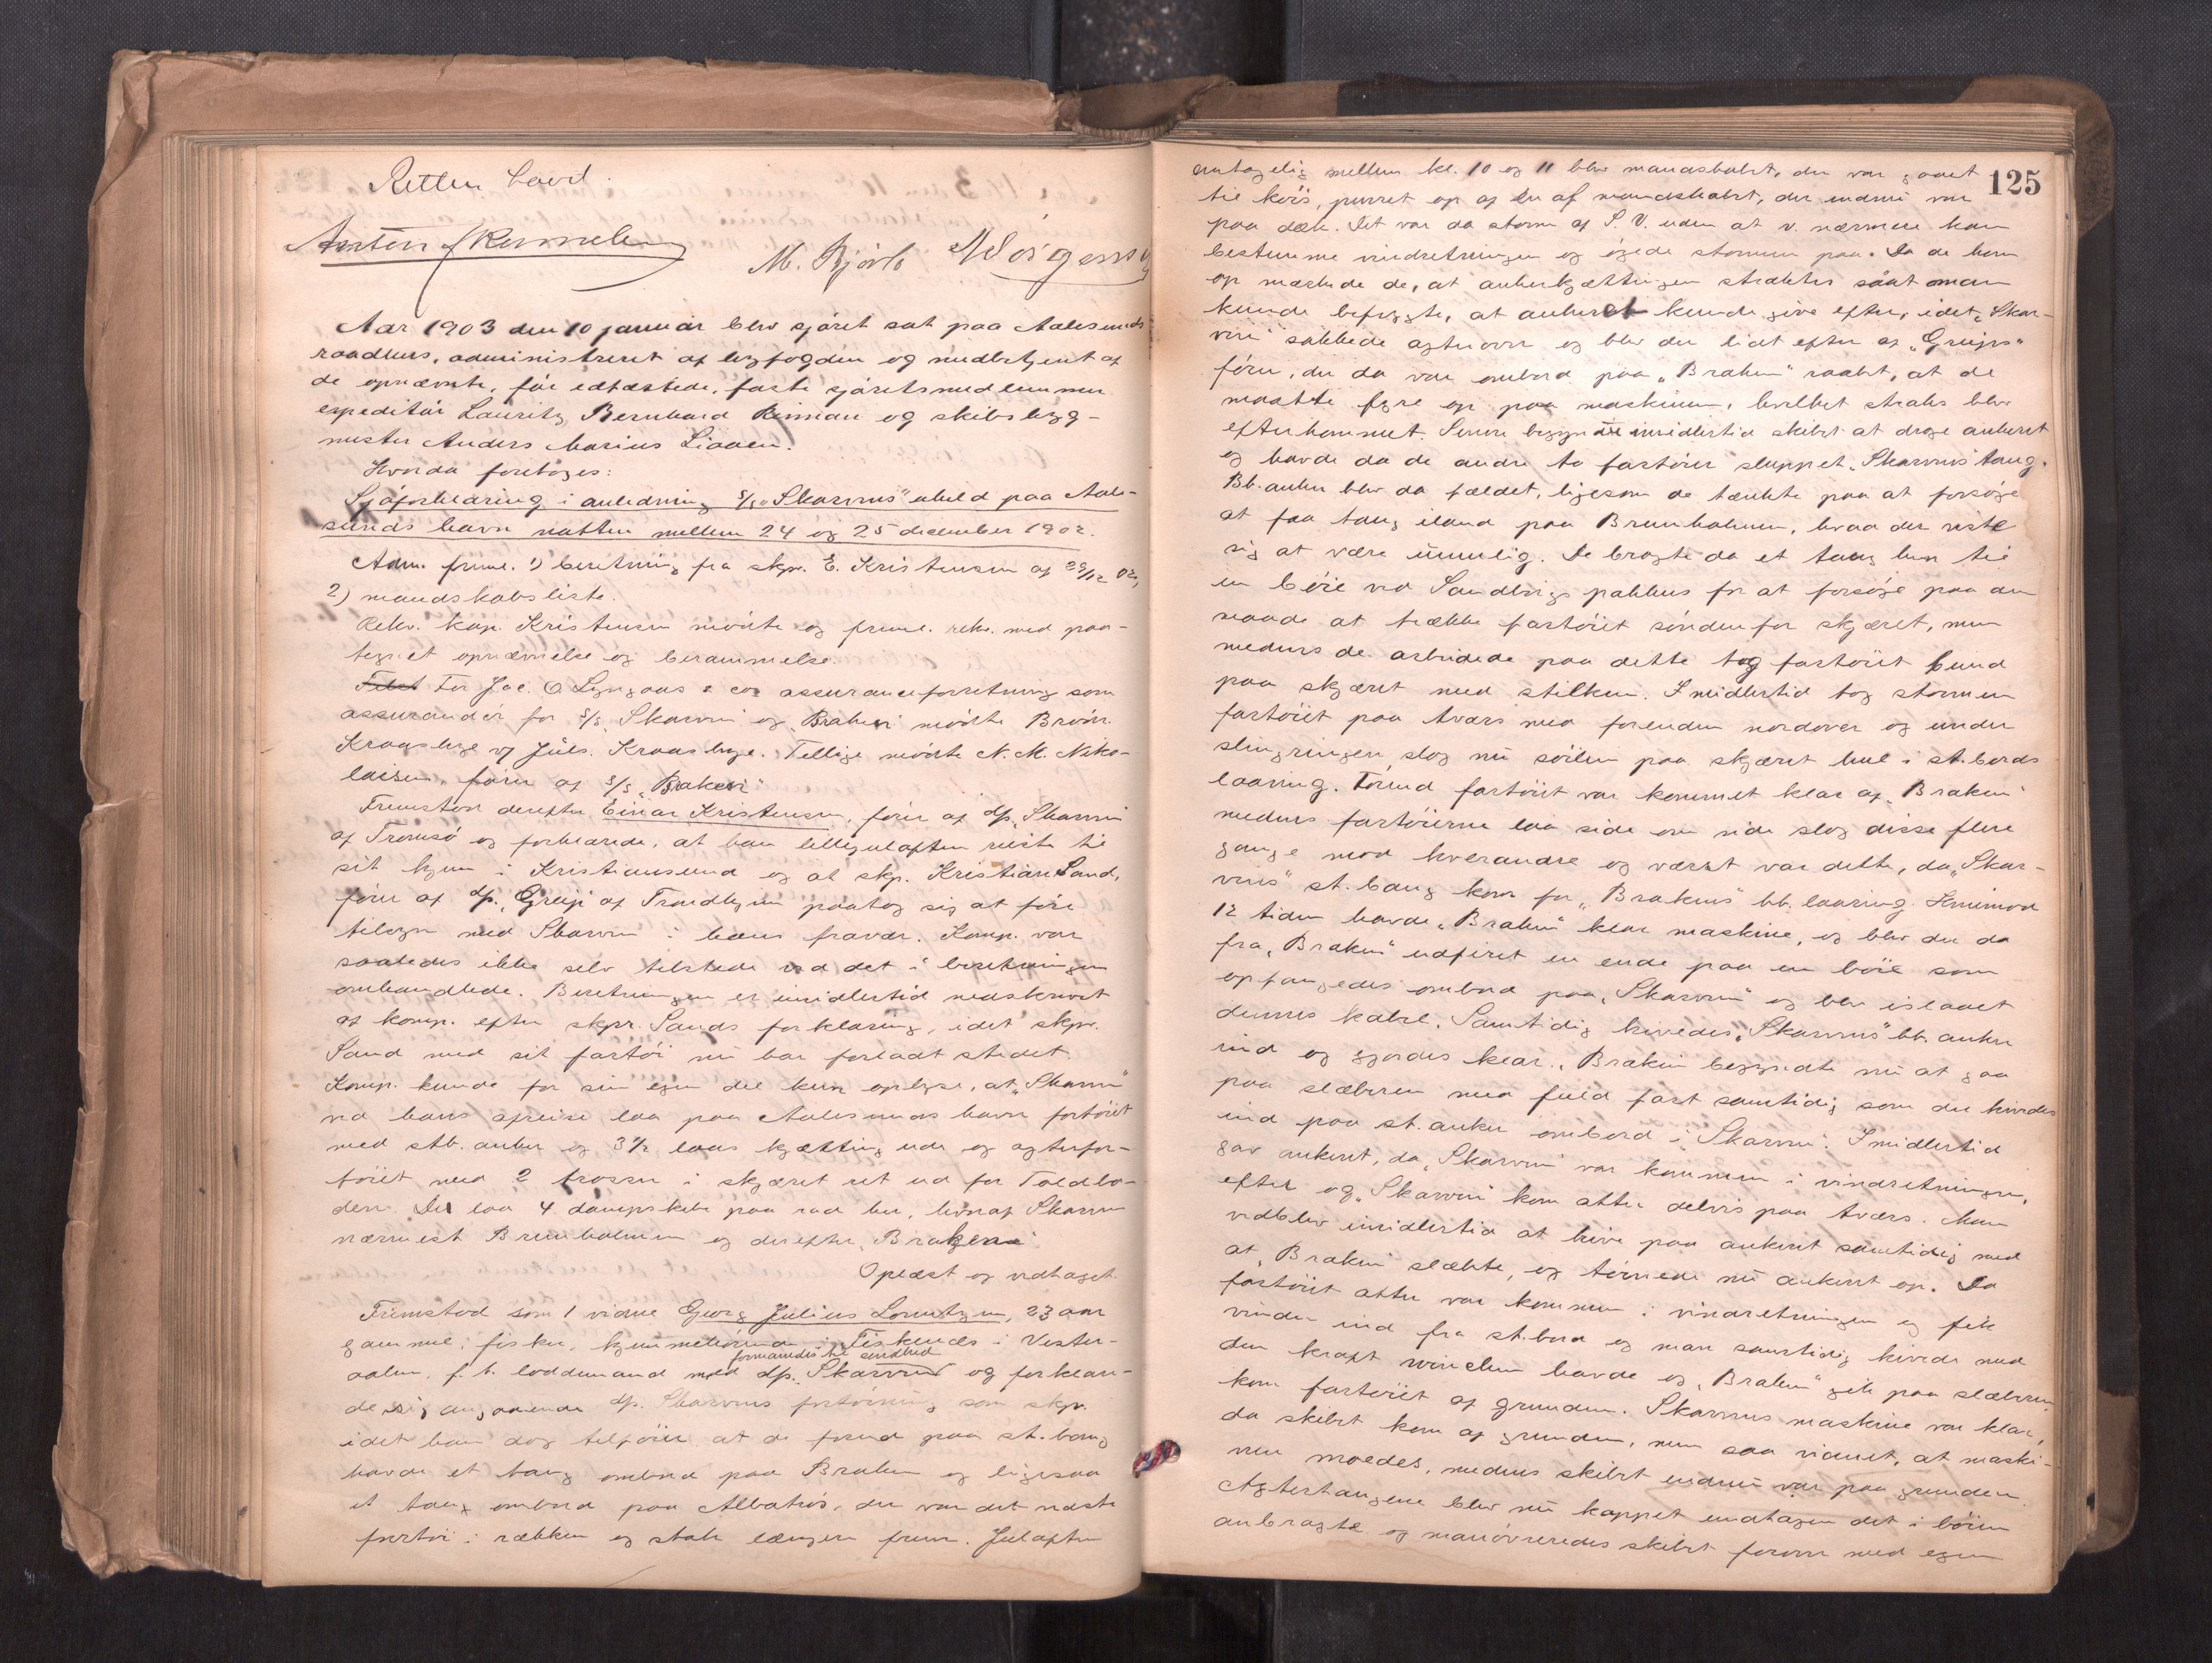 Retten hævet.
M. Bjørlo
Aar 1903 den 10 januar blev sjøret sat paa Aalesunds
raadhus, administreret af byfogden og medbetjent af
de opnævnte, før edfæstede, faste sjøretsmedlemmer
expeditør Lauritz Bernhard Rønneau og skibsbyg-
mester Anders Marius Liaaen.
Hvorda foretoges:
Sjøforklaring i anledning s/s "Skarvens" uheld paa Aale-
sunds havn natten mellem 24 og 25 december 1902.
Adm. freml. 1) beretning fra skpr. E. Kristensen af 29/12 02,
2) mandskabsliste.
Rekv. kap. Kristensen mødte og freml. rekv. med paa-
tegnet opnævnelse og berammelse.
For Jac. O. Lyngaas & co assuranceforretning som
assurandør for s/s "Skarven" og "Braken" mødte Brødr.
Kraasbye v/ Juls. Kraasbye. Tillige mødte N. M. Niko-
laisen, fører af s/s "Braken"
Fremstod derefter Einar Kristensen, fører af dp. "Skarven"
af Tromsø og forklarede, at han lillejulaften reiste til
sit hjem i Kristiansund og at skp. Kristian Sand,
fører af dp. "Greip" af Trondhjem paatog sig at føre
tilsyn med Skarven i hans fravær. Komp. var
saaledes ikke selv tilstede ved det i beretningen
omhandlede. Beretningen er imidlertid nedskrevet
af komp. efter skpr. Sands forklaring, idet skpr.
Sand med sit fartøi nu har forladt stedet.
Komp. kunde for sin egen del kun oplyse, at "Skarven"
ved hans afreise laa paa Aalesunds havn fortøiet
med stb. anker og 3 1/2 laas kjætting ude og agterfor-
tøiet med 2 trosser i skjæret ret ud for Toldbo-
den. Der laa 4 dampskibe paa rad her, hvoraf Skarven
nærmest Brunholmen og derefter "Braken"
Oplæst og vedtaget.
Fremstod som 1 vidne Georg Julius Lorentzen, 23 aar
gammel, fisker, hjemmehørende i Fiskenes i Vester-
formanedes til sandhed
aalen, f. t. loddemand med dp. "Skarven" og forklare-
de sig angaaende dp. Skarvens fortøining som skpr.
idet han dog tilføier at de forud paa st. boug
havde et taug ombord paa Braken og ligesaa
et taug ombord paa Albatros, der var det næste
fartøi i rækken og stak længere frem. Julaften
125
antagelig mellem kl. 10 og 11 blev mandskabet, der var gaaet
til køis, purret op af en af mandskabet, der endnu var
paa dæk. Det var da storm af S.V. uden at v. nærmere kan
bestemme vindretningen og øgede stormen paa. Da de kom
op mærkede de, at ankerkjættingen straktes saat man
kunde befrygte, at ankeret kunde give efter, idet "Skar-
ven" sakkede agterover og blev der lidt efter af "Greips"
fører, der da var ombord paa "Braken" raabt, at de
maatte fyre op paa maskinen, hvilket straks blev
efterkommet. Senere begyndte imidlertid skibet at drage ankeret
og havde da de andre to fartøier sluppet "Skarvens" taug.
Bb. anker blev da fældet, ligesom de tænkte paa at forsøge
at faa taug iland paa Brunholmen, hvad der viste
sig at være umulig. De bragte da et taug hen til
en bøie ved Sandbergs pakhus for at forsøge paa den
maade at trække fartøiet søndenfor skjæret, men
medens de arbeidede paa dette tog fartøiet bund
paa skjæret med stilken. Imidlertid tog stormen
fartøiet paa tværs med forenden nordover og under
slingringen slog nu søilen paa skjæret hul i st.bords
laaring. Forend fartøiet var kommet klar af "Braken"
medens fartøierne laa side om side slog disse flere
gange mod hverandre og værst var dette, da "Skar-
vens" st. boug kom for "Brakens" bb. laaring. Henimod
12 tiden havde "Braken" klar maskine, og blev der da
fra "Braken" udfiret en ende paa en bøie som
opfangedes ombord paa "Skarven" og blev islaaet
dennes kabel. Samtidig hivedes "Skarvens" bb. anker
ind og gjordes klar. "Braken begyndte nu at gaa
paa slæberen med fuld fart samtidig som der hivedes
ind paa st. anker ombord i "Skarven". Imidlertid
gav ankeret, da "Skarven" var kommen i vindretningen,
efter og "Skarven" kom atter delvis paa tværs. Man
vedblev imidlertid at hive paa ankeret samtidig med
at "Braken" slæbte, og tørnede nu ankeret op. Da
fartøiet atter var kommen i vindretningen og fik
vinden ind fra st.bord og man samtidig hivede med
den kraft winchen havde og "Braken" gik paa slæberen
kom fartøiet af grunden. Skarvens maskine var klar,
da skibet kom af grunden, men saa vidnet, at maski-
nen moedes, medens skibet endnu var paa grunden.
Agtertaugene blev nu kappet undtagen det i bøien
anbragte og manøvreredes skibet forover med egen